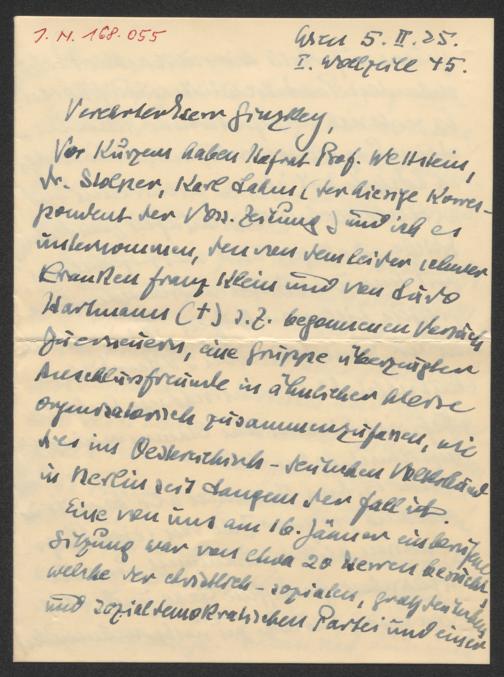 J. N. 168.055
Wien 5. II. 25.
I. Wollzeile 45.
Verehrter Herr Ginzkey,
Vor Kurzem haben Hofrat Prof. Wettstein,
Dr. Stolper, Karl Lahm (der hiesige Korres-
pondent der Voss. Zeitung) und ich es
unternommen, den von dem leider schwer
Kranken Franz Klein und von Ludo
Hartmann (†) s. Z. begonnenen Versuch
zu erneuern, eine Gruppe überzeugter
Anschlussfreunde in ähnlicher Weise
organisatorisch zusammenzufassen, wie
dies im Oesterreichisch-deutschen Volksbund
in Berlin seit Langem der Fall ist.
Eine von uns am 16. Jänner einberufene
Sitzung war von etwa 20 Herren besucht,
welche der christlich-sozialen, großdeutschen
und sozialdemokratischen Partei und einer